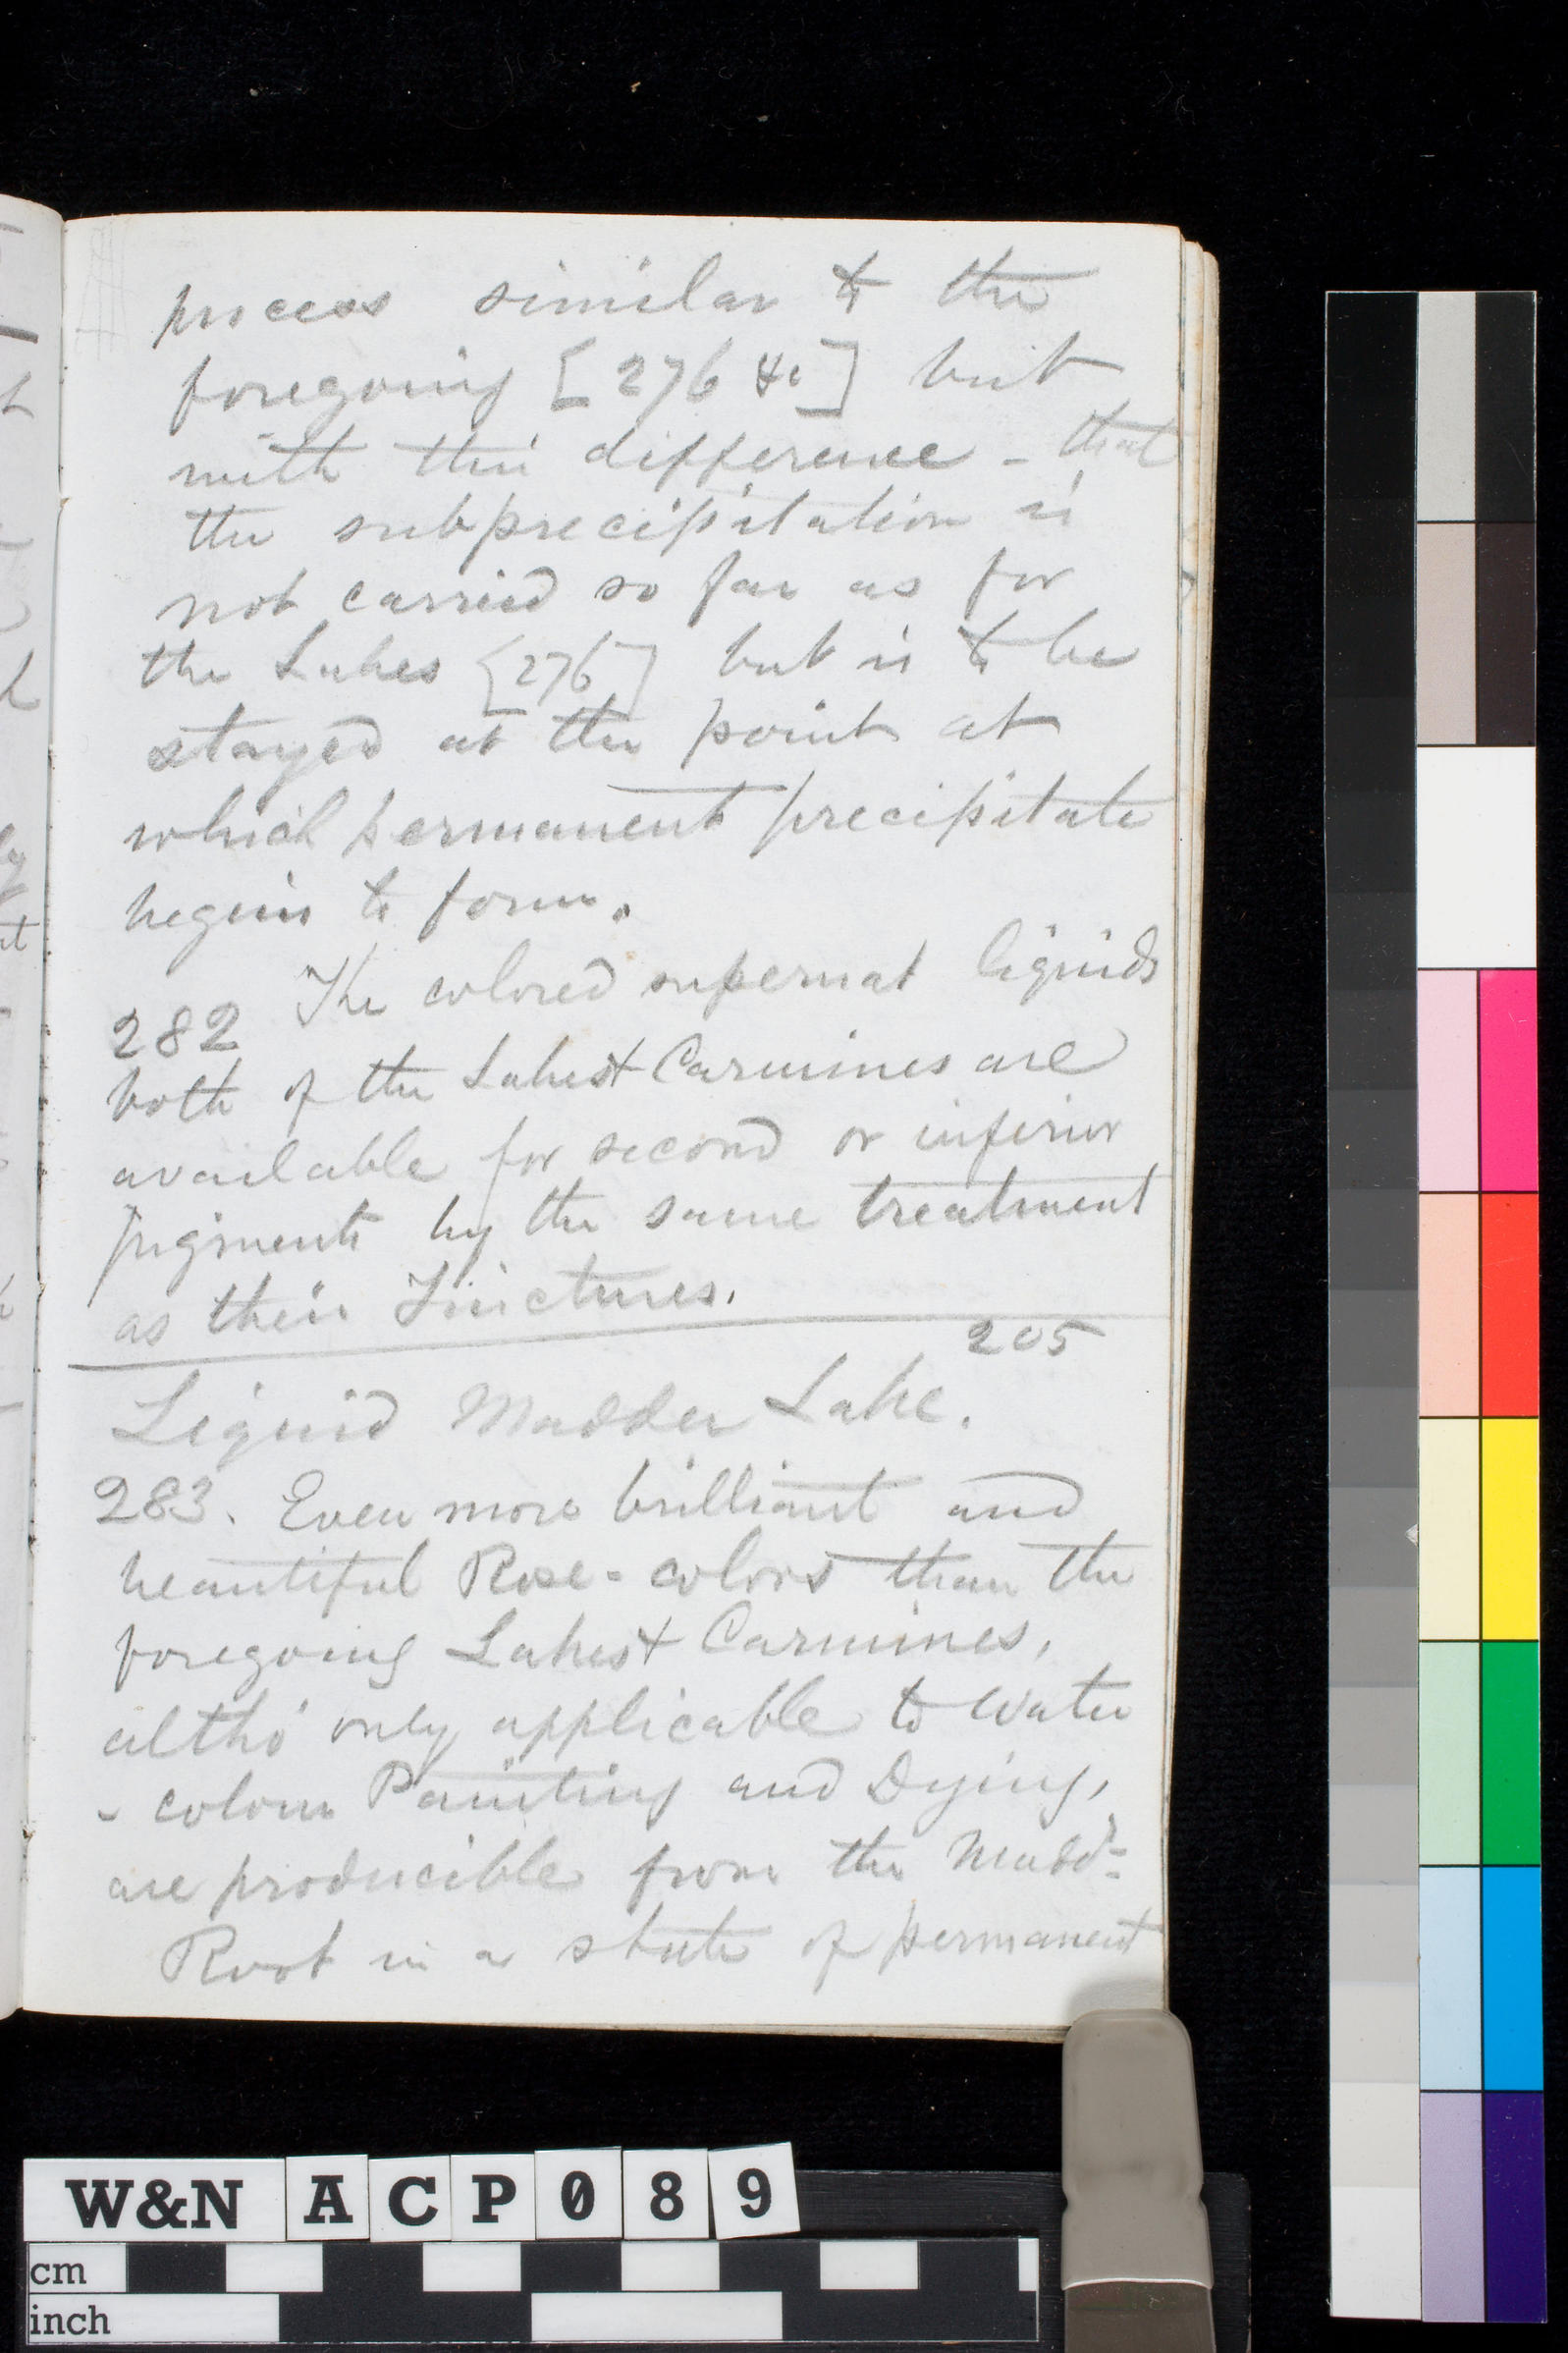 process similar to the
foregoing [276 &c] but
with this difference - that
the subprecipitation is
not carried so far as for
the Lakes [276] but is to be
stayed at the point at
which permanent precipitate
begins to form.
282 The colored supernat liquids
both of the Lakes + Carmines are
available for second or inferior
pigments by the same treatment
as their Tinctures.
205
Liquid Madder Lake.
283. Even more brilliant and
beautiful Rose-colors than the
foregoing Lakes + Carmines,
altho' only applicable to Water
- colour Painting and Dying,
are producible from the Madd.r
Root in a state of permanent
W&N ACP089
cm
inch